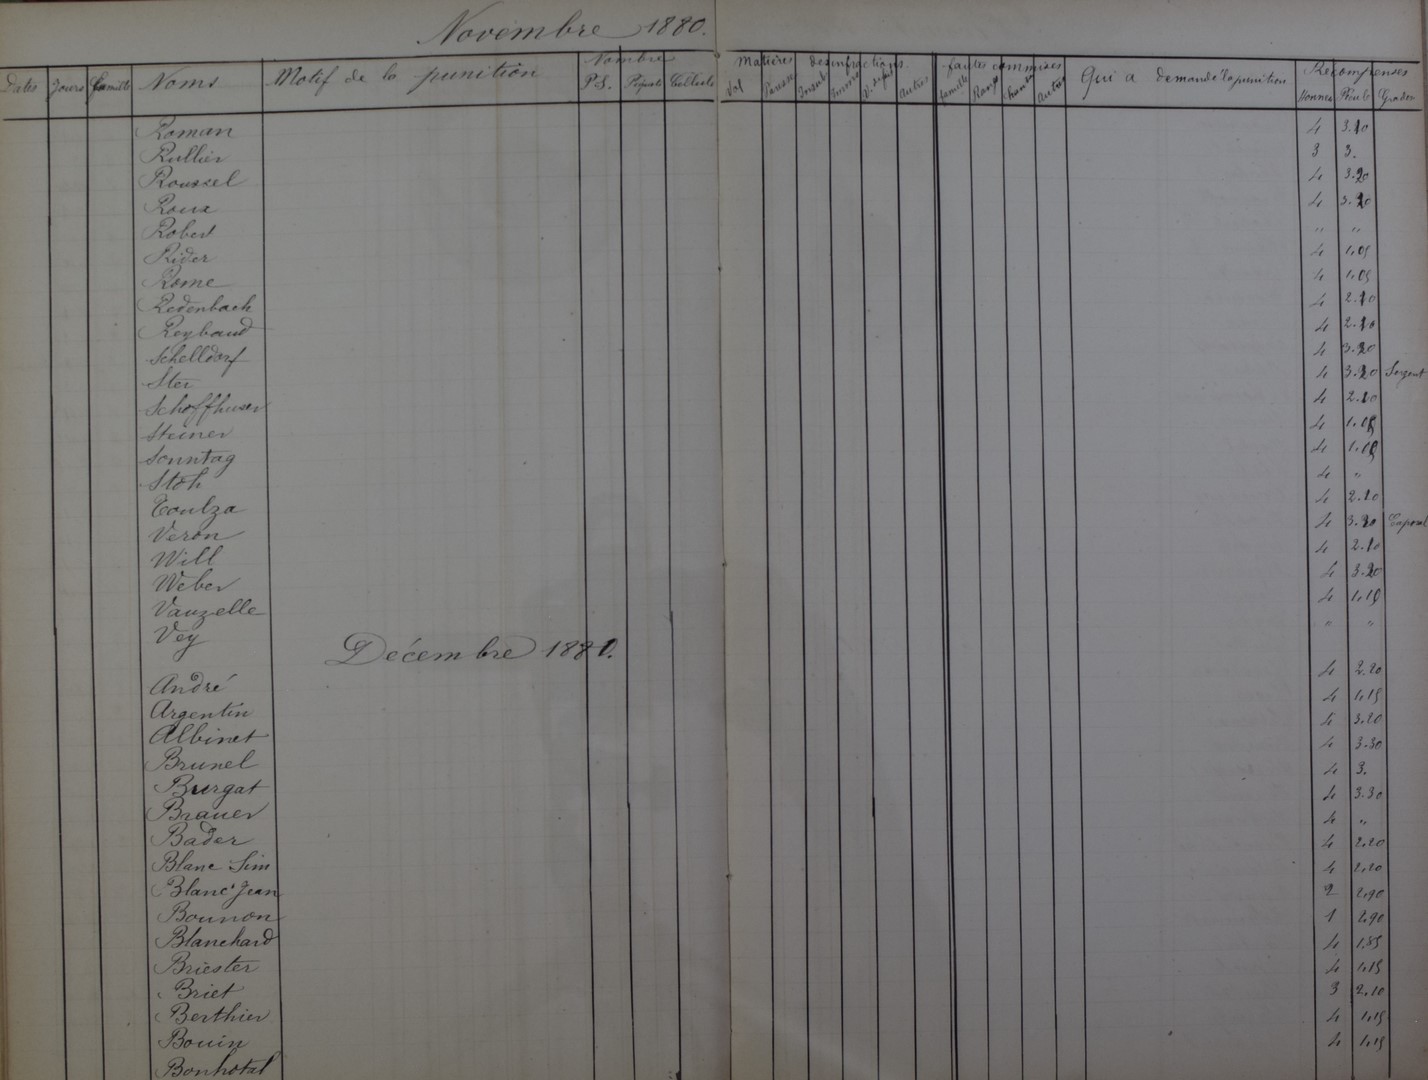 Novembre 1880.
Nombre Matières desinfractions fautes commises Récompenses
Dates Jours famille Noms Motif de la punition P.S. Piquets Cellule Vol Paresse Insub Immo Autres famille Rang Autres Qui a demandé la punition Honneur Grades
Roman 4 3.10
Rullier 3 3.
Roussel 4 3.20
Roux 4 3.20
Robert " "
Rider 4 1.05
Rome 4 1.05
Redenbach 4 2.10
Reybaud 4 2.10
Schelldorf 4 3.20
Ster 4 3.20 Sergent
Schoffhuser 4 2.10
Steiner 4 1.05
Sonntag 4 1.05
Stoh 4 "
Toulza 4 2.10
Veron 4 3.20 Caporal
Will 4 2.10
Weber 4 3.20
Vauzelle 4 1.15
Vey " "
Décembre 1880.
André 4 2.20
Argentin 4 1.15
Albinet 4 3.20
Brunel 4 3.30
Burgat 4 3.
Brauer 4 3.30
Bader 4 "
Blanc Sim 4 2.20
Blanc Jean 4 2.20
Bounon 2 2.90
Blanchard 1 2.90
Briester 4 1.85
Briet 4 1.15
Berthier 3 2.10
Bouin 4 1.15
Bonhotal 4 1.15